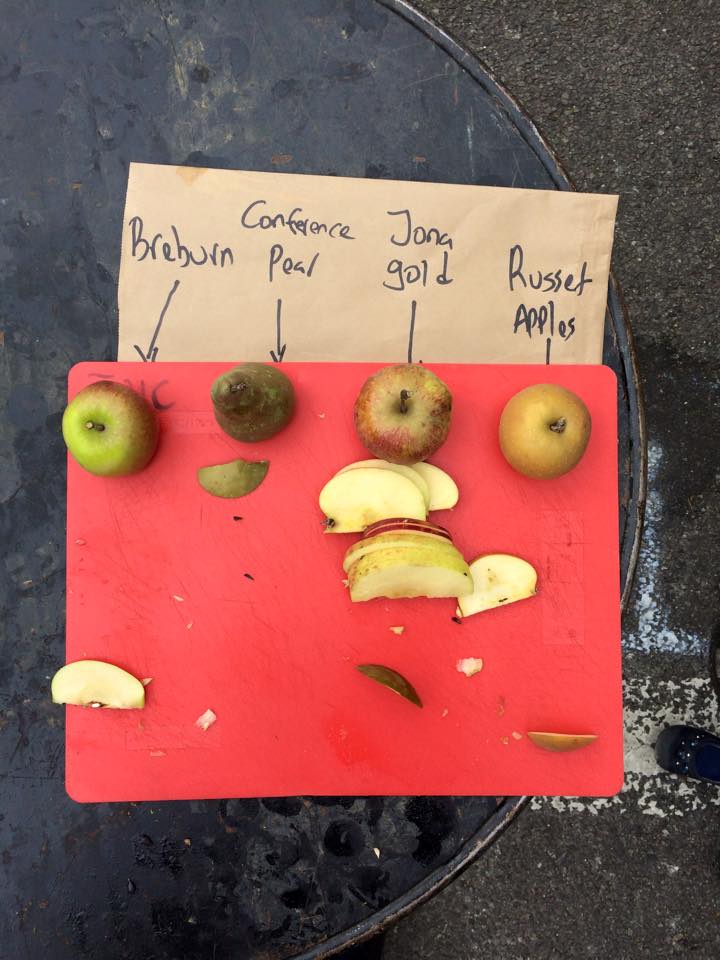 Breburn
Conference
Pear
Jona
gold
Russet
Apples